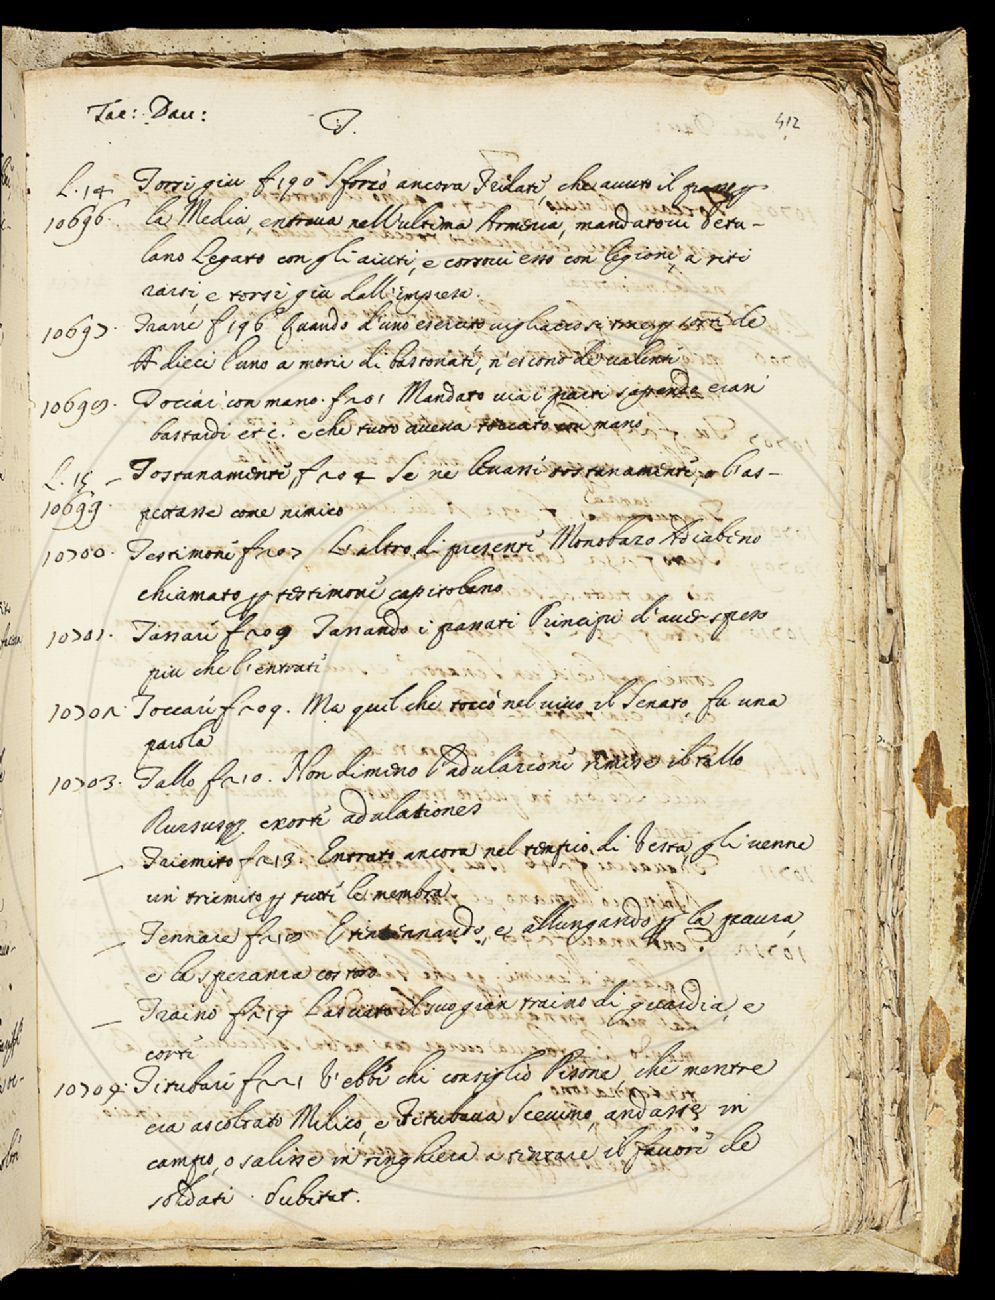 Tac: Dau:
T.
412
L. 14 Torsi giu f 190 Sforzò ancora Tridati, che auuto il passo p
10696. la Media, entraua nell'ultima Armenia, mandatoui Veru-
lano Legato con gli aiuti, e corsoui esso con legioni, à riti
rarsi, e torsi giu dall'impresa.
10697. Trarre f 196 Quando d'uno esercito uigliacco si trae p sorte de
dieci l'uno a morir di bastonati, n'escono de ualenti
10698. Toccar con mano. f 201 Mandato uia i parti sapendo eran
bastardi etc. e che tutto aueua toccato con mano
L. 15 – Tostanamenti, f 204 Se ne leuassi tostanamenti, o l'as-
10699. pettasse come nimico
10700. Testimoni f 207 Et altro, di presenti Monobazo Adiabeno
chiamato p testimoni capitolano
10701. Tassari f 209 Tassando i passati Principi d'auer speso
piu che l'entrati
10702. Toccari f 209. Ma quel che toccò nel uiuo il Senato, fu una
parola
10703. Tallo f 210. Non dimeno l'adulazioni rimise il tallo
Rursusq exorti adulationes
– Triemito f 213. Entrato ancora nel tempio di Vesta, gli uenne
un triemito p tutti le membra
– Tennare f 218 E tintennando, e allungando p la paura,
e la speranza costoro
– Traino f 219 Lasciato il suo gran traino di guardia, e
corti
10704. Titubari f 221 V'ebbi chi consigliò Pisone, che mentre
era ascoltato Milico, e titubaua Sceuino, andasse in
campo, o salisse in ringhiera a tintare il fauori de
soldati. Dubitet.